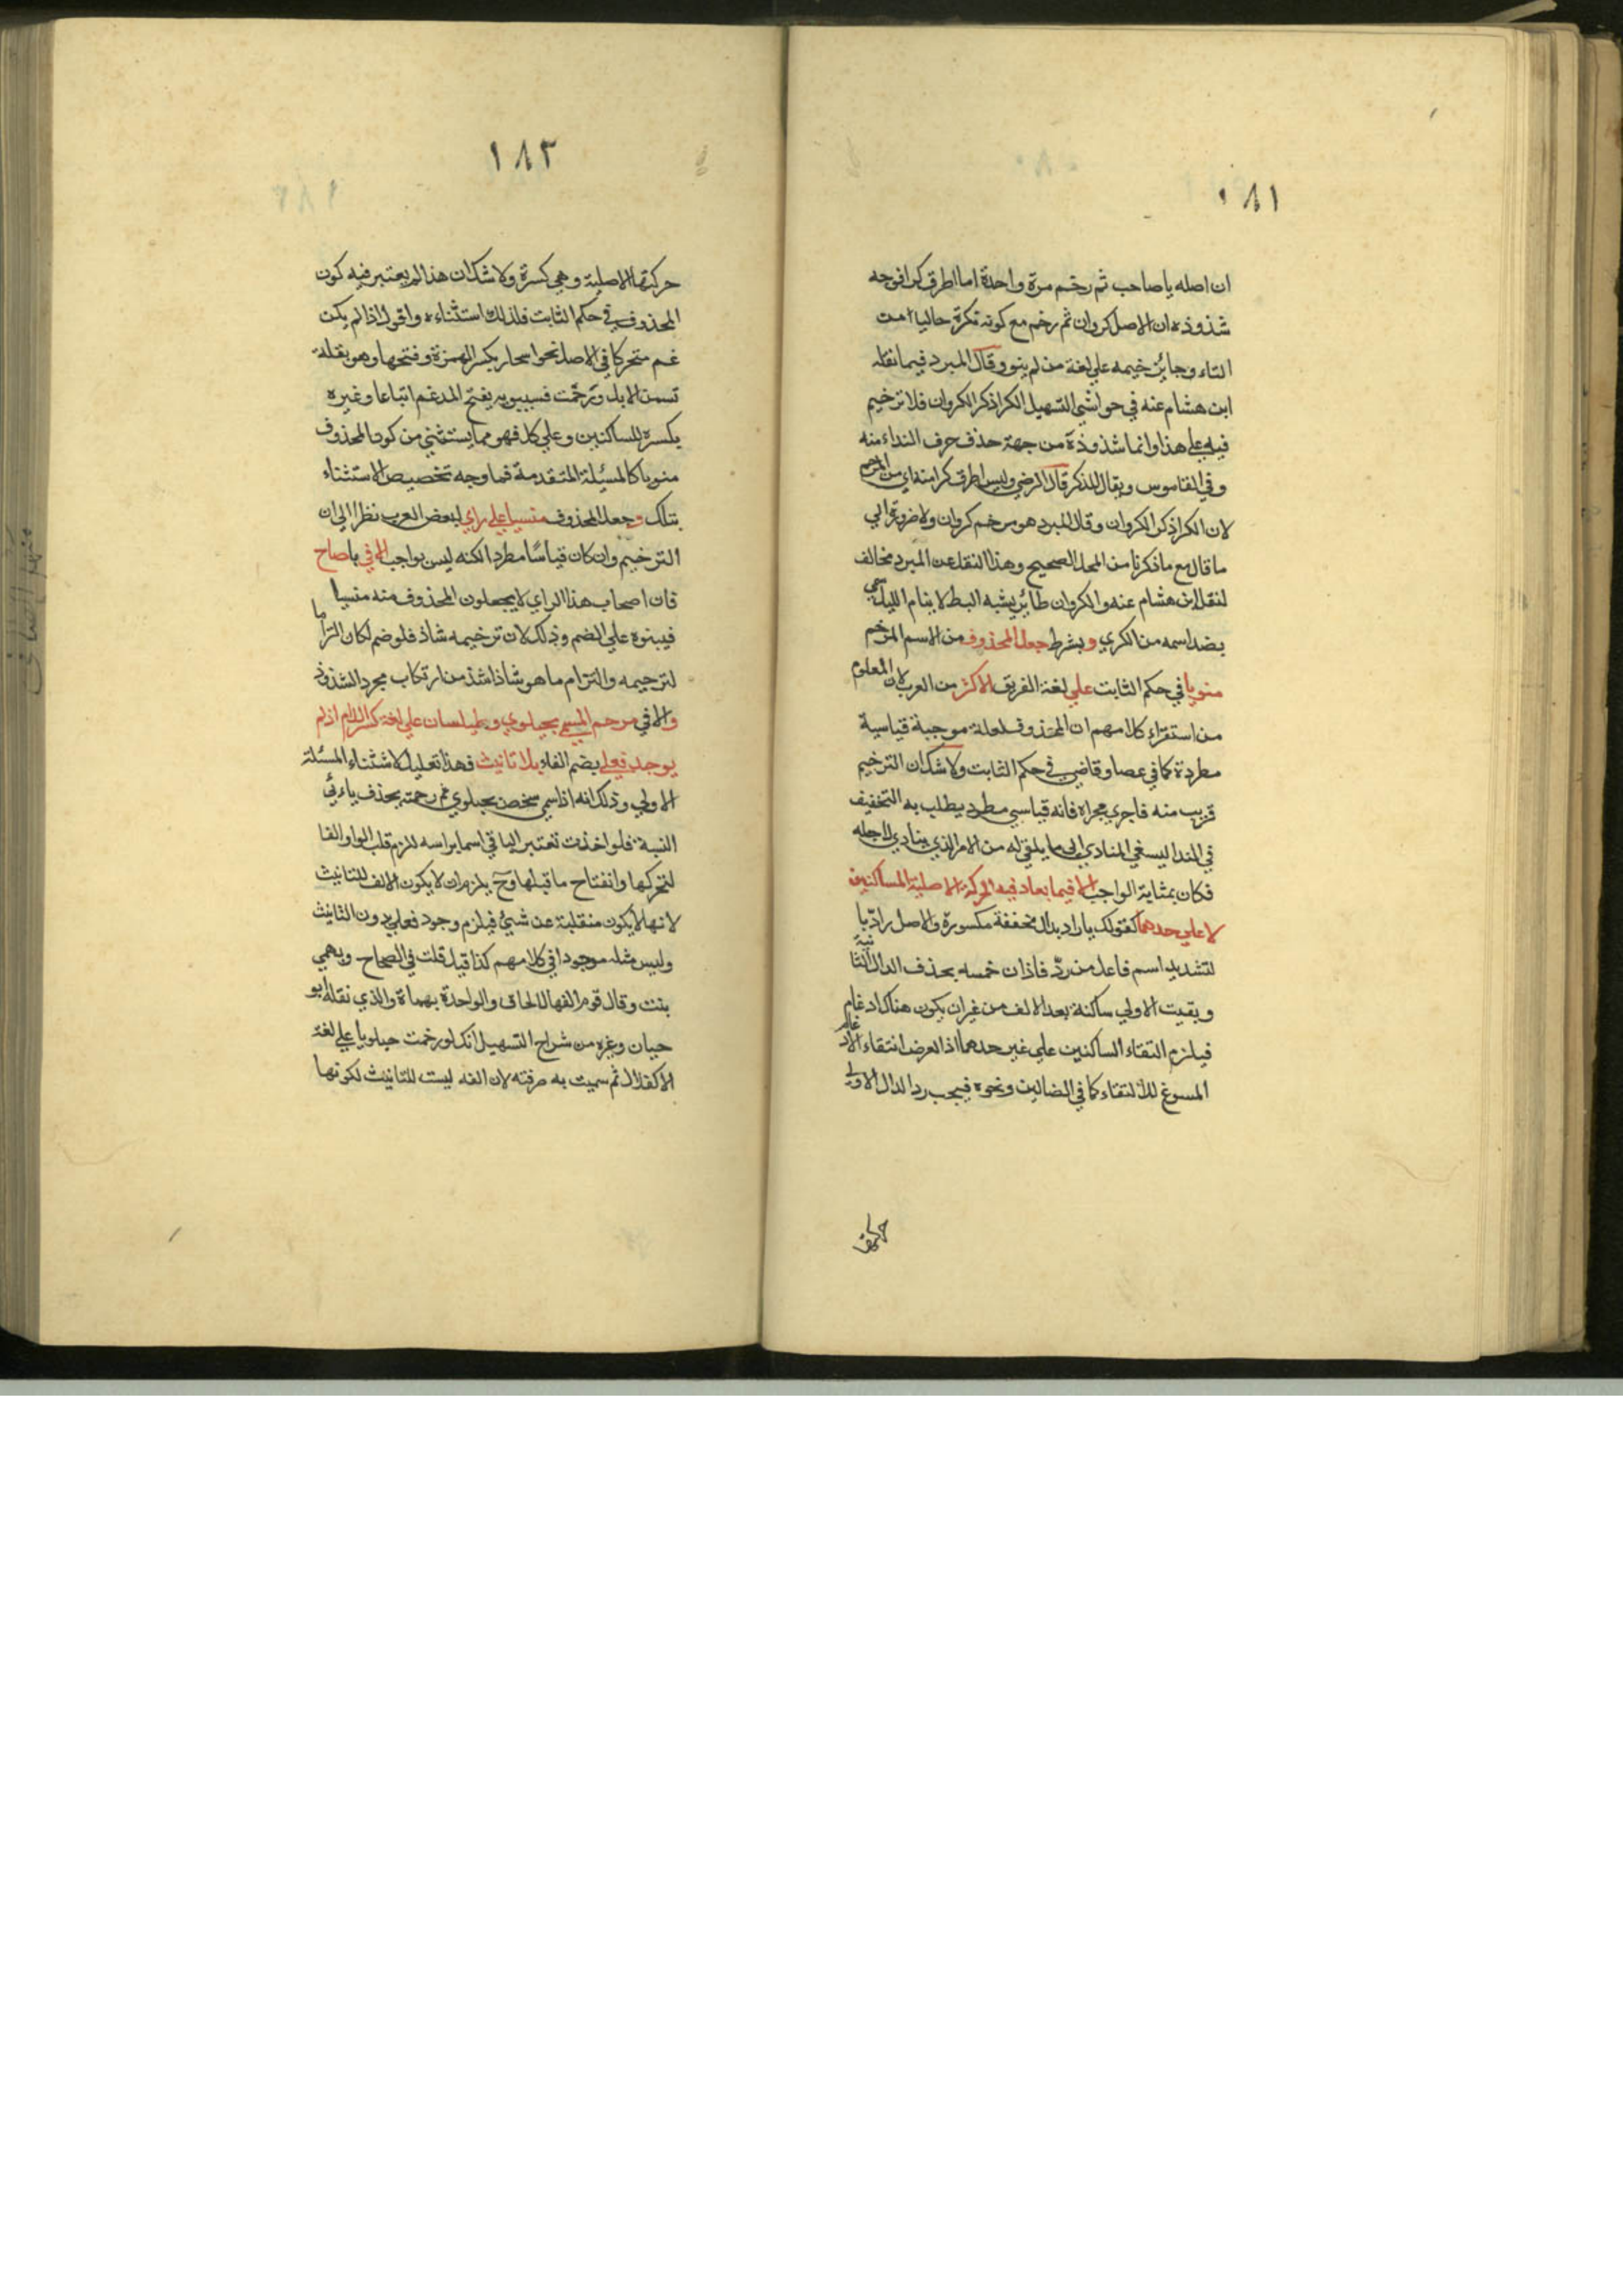 ١٨١
ان اصله ياصاحب ثم رخم مرة واحدة اما اطرق كرا فوجه
شذوذه ان الاصل كروان ثم رخم مع كونه نكرة خاليا من
التاء وجا ترخيمه علي لغة من لم ينو وقال المبرد فيما نقله
ابن هشام عنه في حواشي التسهيل الكرا ذكر الكروان فلا ترخيم
فيه علي هذا وانما شذوذه من جهة حذف حرف النداء منه
وفي القاموس ويقال للذكر قال الرضي وليس اطرق كرا منه اي من المرخم
لان الكرا ذكر الكروان وقال المبرد هو مرخم كروان ولا ضرورة الي
ما قال مع ما ذكرنا من المحل الصحيح وهذا النقل عن المبرد مخالف
لنقل ابن هشام عنه والكروان طائر يشبه البط لا ينام الليل سمي
بضد اسمه من الكري وبشرط جعل المحذوف من الاسم المرخم
منويا في حكم الثابت علي لغة الفريق الاكثر من العرب لان المعلوم
من استقراء كلامهم ان المحذوف لعلة موجبة قياسية
مطردة كما في عصا وقاضي في حكم الثابت ولا شك ان الترخيم
قريب منه فاجري مجراه فانه قياسي مطرد يطلب به التخفيف
في الندا ليسغي المنادي الي ما يلقي له من الامر الذي ينادي لاجله
فكان بمثابة الواجب الا فيما يعاد فيه الحركة الاصلية للساكنين
لا علي حدهما كقولك يا راد بدال مخففة مكسورة والاصل رادّ يا
لتشديد اسم فاعل من ردّ فاذا رخمته بحذف الدال الثانية
وبقيت الاولي ساكنة بعد الالف من غير ان يكون هناك ادغام
فيلزم التقاء الساكنين علي غير حدهما اذ الغرض انتفاء الادغام
المسوغ للالتقاء كما في الضالين ونحوه فيجب رد الدال الاولي
حركتها
١٨٢
حركتها الاصلية وهي كسرة ولا شك ان هذا لم يعتبر فيه كون
المحذوف في حكم الثابت فلذلك استثناءه واقول اذا لم يكن
غم متحركا في الاصل نحو اسحار بكسر الهمزة وفتحها وهو بقلة
تسمن الابل ورخمت فسيبويه يفتح المدغم اتباعا وغيره
يكسره للساكنين وعلي كل فهو مما يستثني من كون المحذوف
منويا كالمسئلة المتقدمة فما وجه تخصيص الاستثناء
بتلك وجعل المحذوف منسيا علي راي لبعض العرب نظرا الي ان
الترخيم وان كان قياسًا مطردا لكنه ليس بواجب الا في ياصاح
فان اصحاب هذا الراي لا يجعلون المحذوف منه منسيا
فيبنوه علي الضم وذلك لان ترخيمه شاذ فلو ضم لكان التزاما
لترخيمه والتزام ما هو شاذ اشذ من ارتكاب مجرد الشذوذ
والا في مرخم المسمي بحبلوي وطيلسان علي لغة كسر اللام اذ لم
يوجد فعلي بضم الفاء بلا تانيث فهذا تعليل لاستثناء المسئلة
الاولي وذلك انه اذا سمي شخص بحبلوي ثم رخمته بحذف يائي
النسبة فلو اخذت تعتبر الباقي اسما براسه للزم قلب الواو الفا
لتحركها وانفتاح ما قبلها وح يلزم ان لا يكون الالف للتانيث
لانها لا يكون منقلبة عن شيء فيلزم وجود فعلي بدون التانيث
وليس مثله موجودا في كلامهم كذا قيل قلت في الصحاح وبهمي
بنت وقال قوم الفها للالحاق والواحدة بهماة والذي نقله ابو
حيان وغيره من شراح التسهيل انك لو رخمت حبلويا علي لغة
الاكقلال ثم سميت به صرفته لان الفه ليست للتانيث لكونها